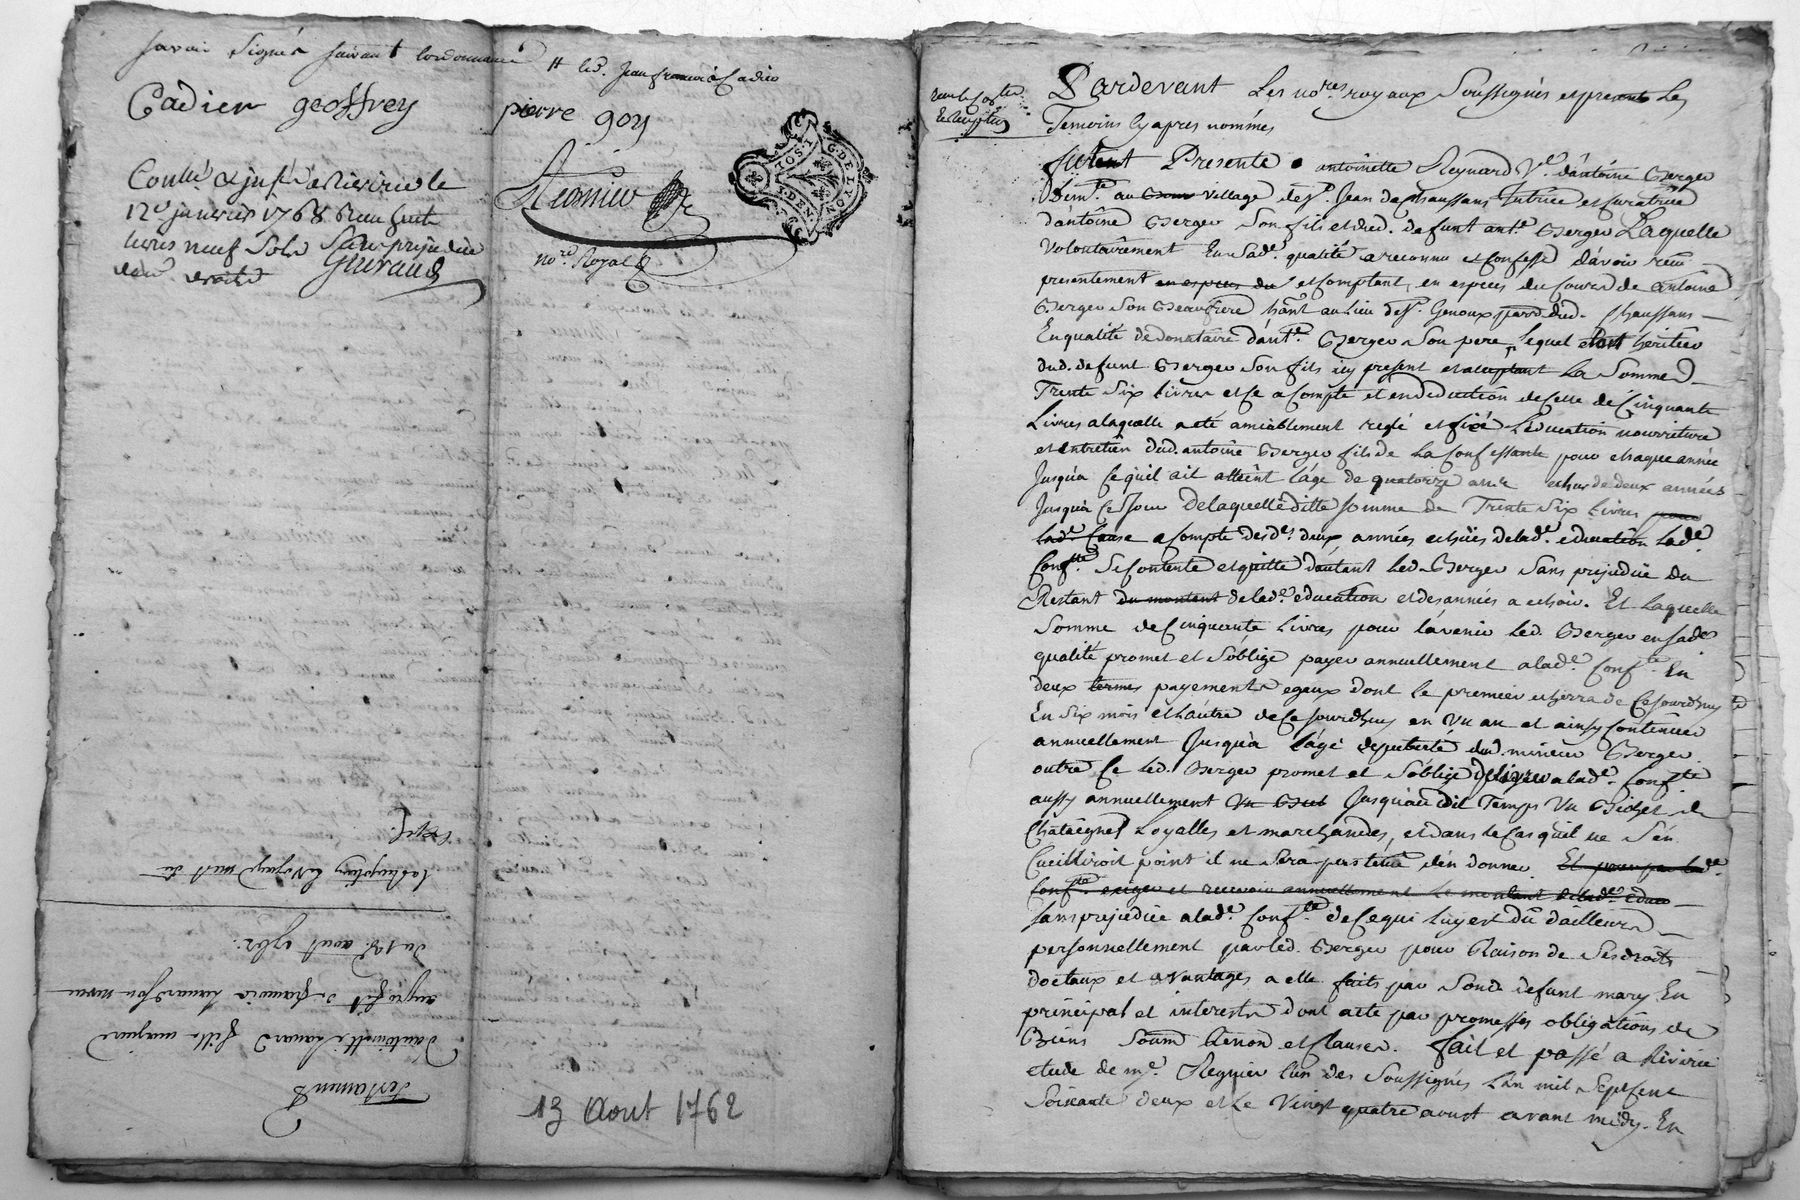 savoir signer suivant lordonnance # led. Jean francois Cadier
Cadier geoffrey
pierre goy
Regnier
no.re Royal
G. DE LYON
Conlé a justé a Riverie le
12e janvier 1768 Reçu huit
livres neuf sols sans prejudice
des droits
Guiraud
13 Aout 1762
Testament
d'antoinette fille majeure
du 13 aout 1762.
Pardevant Les no.res royaux Soussignés et presents Les
Temoins cy apres nommés
fut Presente antoinette Reynard V.e d'antoine Berger
Dem.te au Village de S.t Jean de chaussans tutrice et curatrice
dantoine Berger Son fils et dud. defunt ant.e Berger Laquelle
Volontairement En Sad.e qualité a reconnu et Confessé d'avoir reçu
presentement en especes du et Comptant, en especes du Cours de antoine
Berger Son Beaufrere hant au Lieu de S.t Genoux parr. dud. Chaussans
En qualité de donataire d'ant.e Berger Son pere, lequel etoit heritier
dud. defunt Berger Son fils icy present et acceptant La Somme de
Trente Six livres et Ce a Compte et en deduction de Celle de Cinquante
Livres a laquelle a eté amiablement reglé et fixé L'education nourriture
et entretien dud. antoine Berger fils de La Confessante pour chaque année
Jusqu'a Ce qu'il ait atteint L'age de quatorze ans echus de deux années
Jusqu'a Ce Jour De laquelle ditte Somme de Trente Six Livres pour
lad.e Cause a Compte desd.es deux années echües de lad.e education Lad.e
Conf.te Se Contente et quitte d'autant Led. Berger Sans prejudice du
Restant du montant de lad.e education et des années a echoir. Et Laquelle
Somme de Cinquante Livres pour l'avenir Led. Berger en Sad.e
qualité promet et S'oblige payer annuellement a lad.e Conf.te En
deux termes payements egaux dont le premier echerra de Cejourdhuy
En Six mois et L'autre de Cejourdhuy en Un an et ainsy Continuer
annuellement Jusqu'a L'age de puberté dud. mineur Berger
outre Ce Led. Berger promet et S'oblige delivrer a lad.e Conf.te
aussy annuellement Jusqu'au dit Temps Un Bichet de
Chataignes Loyalles et marchandes, et dans le Cas qu'il ne S'en
Cueilliroit point il ne Sera pas tenu d'en donner. Et pourra lad.e
Conf.te exiger et recevoir annuellement le montant de lad.e educa
Sans prejudice a lad.e Conf.te de Ce qui Luy est dû d'ailleurs
personnellement par led. Berger pour Raison de Ses droits
doctaux et avantages a elle faits par Sond. defunt mary En
principal et interests dont acte par promesses obligations de
Biens Soum. Renon. et Clauses. fait et passé a Riverie
etude de m.e Regnier l'un des Soussignés L'an mil Sept Cent
Soixante deux et Le Vingt quatre aoust avant midy. En